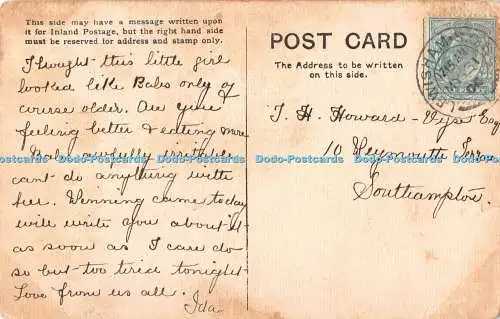 This side may have a message written upon
it for Inland Postage, but the right hand side
must be reserved for address and stamp only.
I thought this little girl
looked like Babs only of
course older. Are you
feeling better & eating more
Babs awfully irritable
cant do anything with
her. Denning came today
will write you about it
as soon as I care do
so but too tired tonight
Love from us all.
Ida
POST CARD
The Address to be written
on this side.
T. H. Howard - Vyse Esq
10 Weymouth Terrace
Southampton.
LEWISHAM
Postcards Postcards Postcards Postcards Postcards Postcards